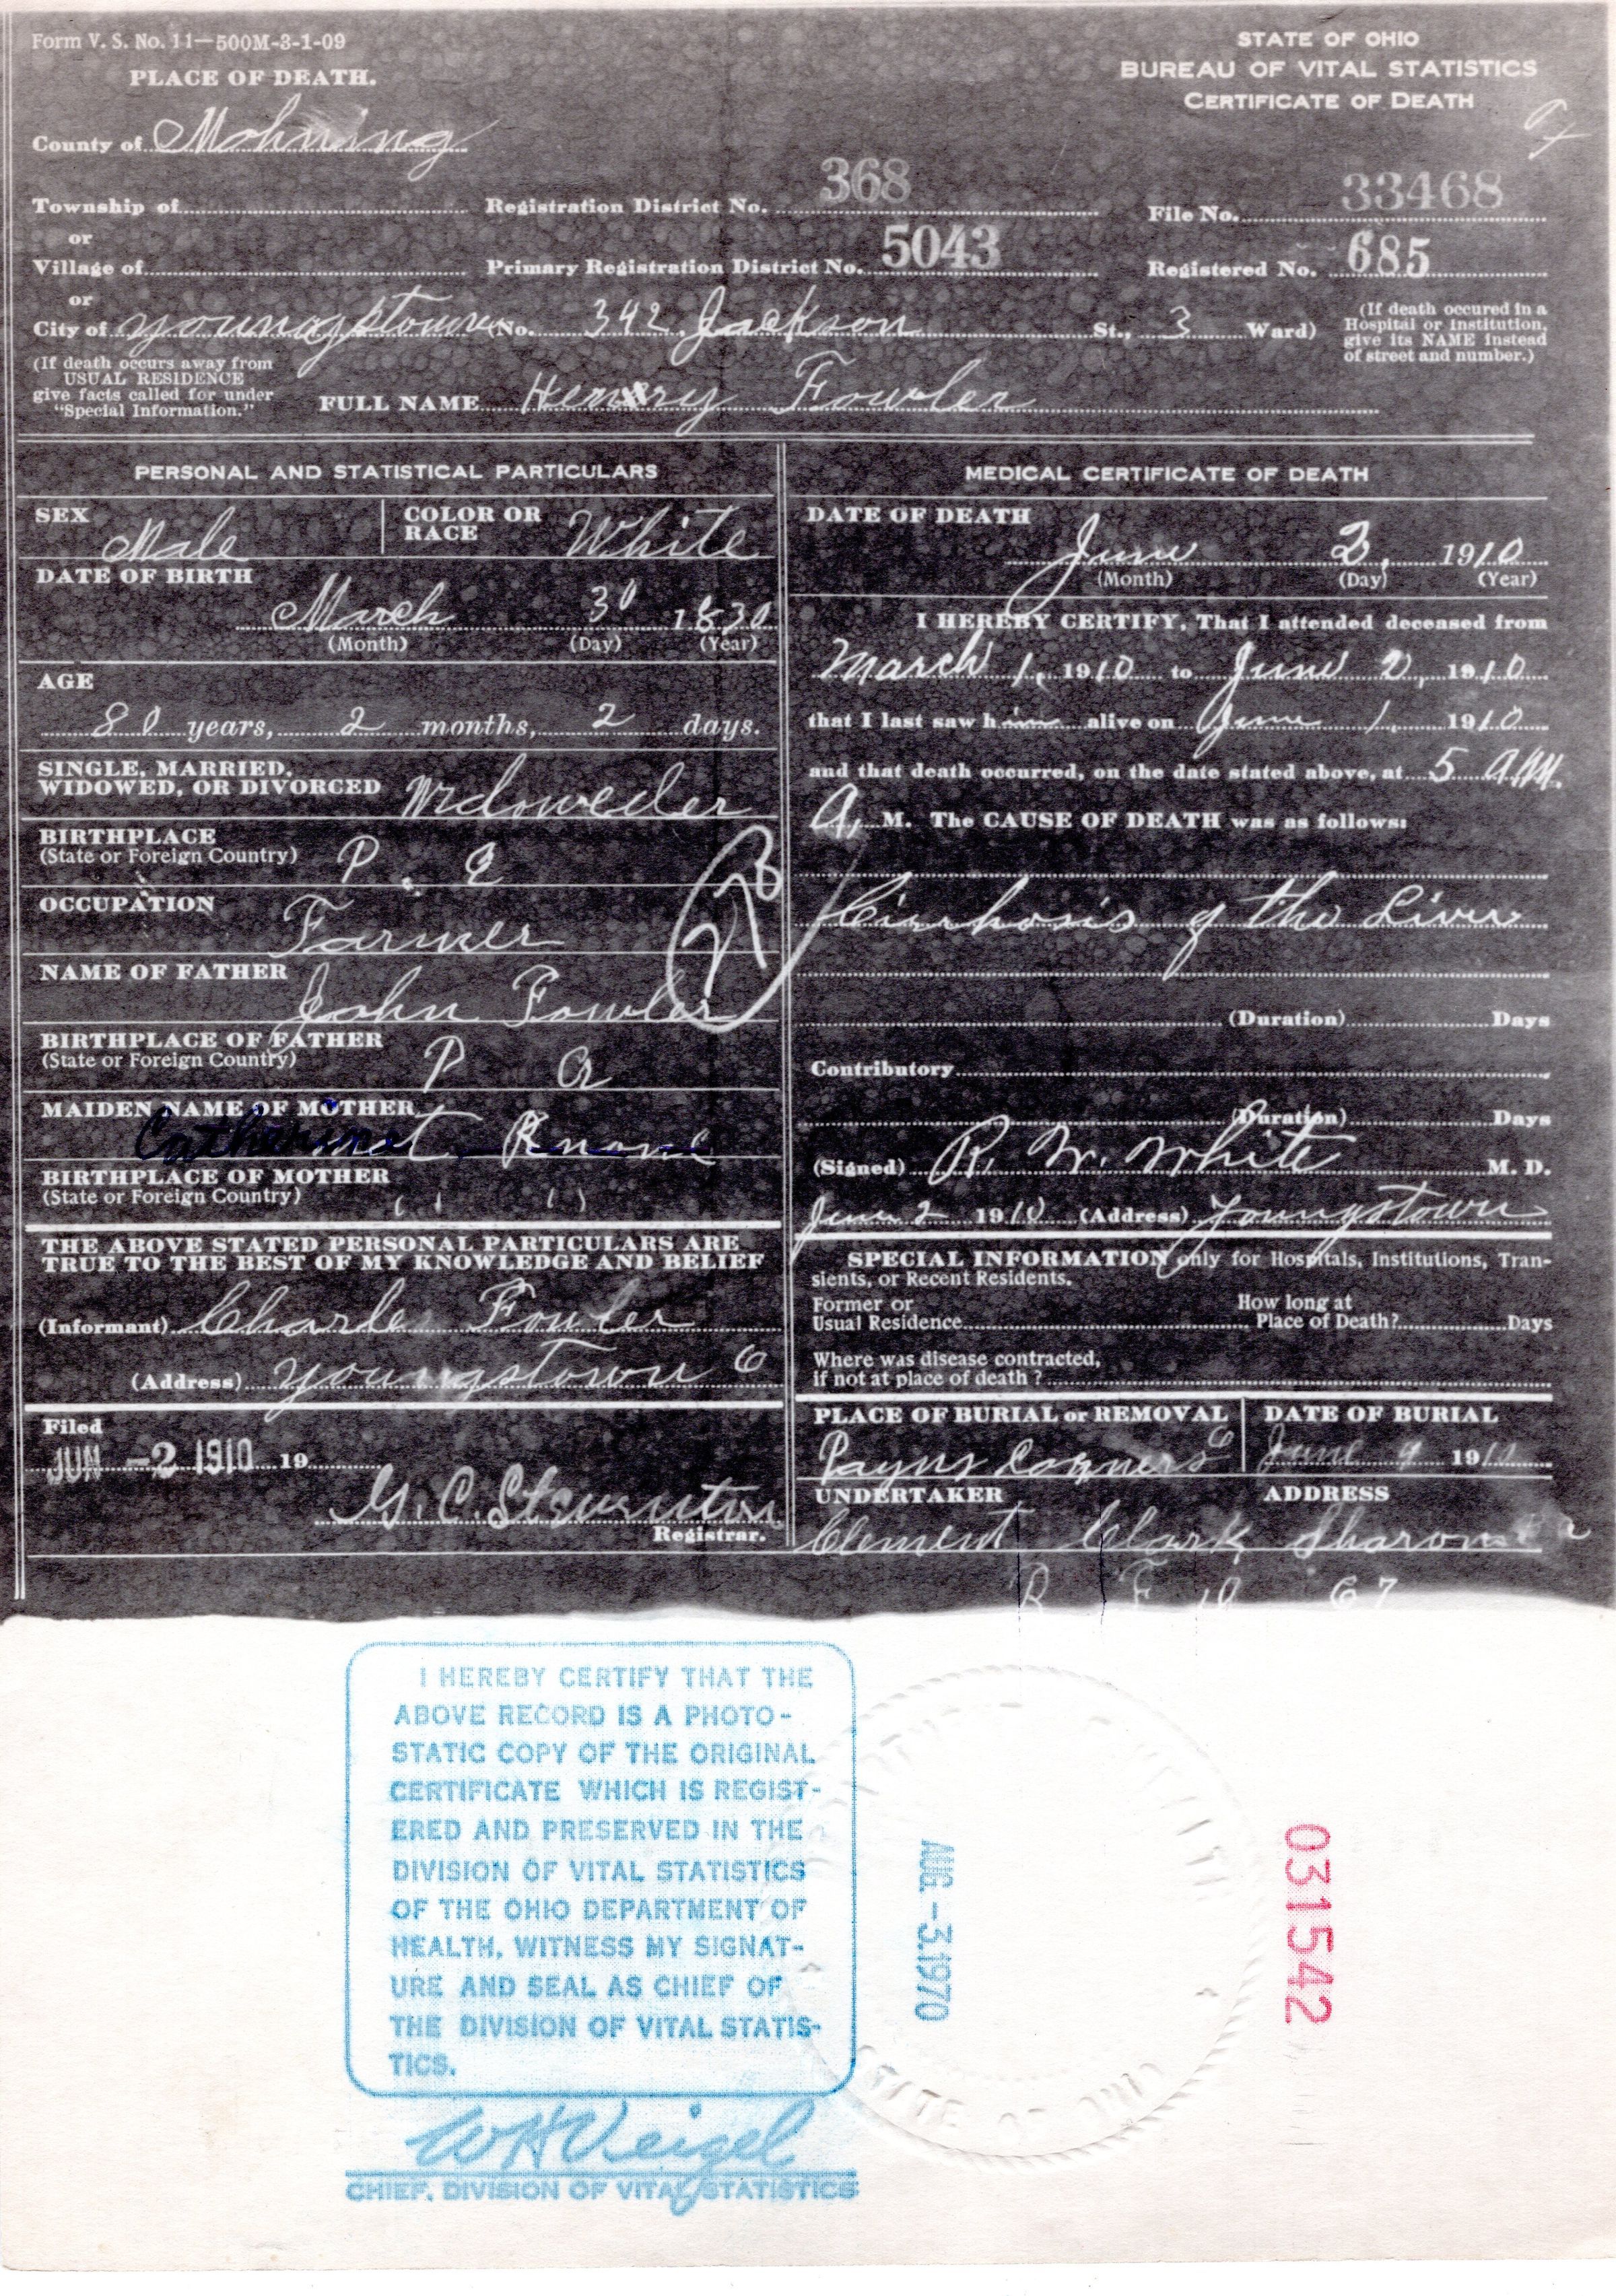 Form V. S. No. 11—500M-3-1-09
STATE OF OHIO
BUREAU OF VITAL STATISTICS
CERTIFICATE OF DEATH
PLACE OF DEATH.
County of Mohning
Township of
Registration District No. 368
File No. 33468
or
Village of
Primary Registration District No. 5043
Registered No. 685
or
City of Youngstown (No. 342 Jackson St., 3 Ward)
(If death occured in a
Hospital or institution,
give its NAME instead
of street and number.)
(If death occurs away from
USUAL RESIDENCE
give facts called for under
"Special Information."
FULL NAME Henry Fowler
PERSONAL AND STATISTICAL PARTICULARS
SEX Male
COLOR OR
RACE White
DATE OF BIRTH
March 30 1830
(Month) (Day) (Year)
AGE
80 years, 2 months, 2 days.
SINGLE, MARRIED,
WIDOWED, OR DIVORCED Widoweder
BIRTHPLACE
(State or Foreign Country) P. a
OCCUPATION
Farmer
278
NAME OF FATHER
John Fowler
BIRTHPLACE OF FATHER
(State or Foreign Country) P a
MAIDEN NAME OF MOTHER
Catherine
BIRTHPLACE OF MOTHER
(State or Foreign Country) " "
THE ABOVE STATED PERSONAL PARTICULARS ARE
TRUE TO THE BEST OF MY KNOWLEDGE AND BELIEF
(Informant) Charle Fowler
(Address) Youngstown O
Filed
JUN -2 1910 19
Registrar.
MEDICAL CERTIFICATE OF DEATH
DATE OF DEATH
June 2, 1910
(Month) (Day) (Year)
I HEREBY CERTIFY, That I attended deceased from
March 1, 1910 to June 2, 1910
that I last saw him alive on June 1, 1910
and that death occurred, on the date stated above, at 5 A.M.
A. M. The CAUSE OF DEATH was as follows:
Cirrhosis of the Liver
(Duration) Days
Contributory
(Duration) Days
(Signed) R. W. White M. D.
June 2 1910 (Address) Youngstown
SPECIAL INFORMATION only for Hospitals, Institutions, Tran-
sients, or Recent Residents.
Former or
Usual Residence
How long at
Place of Death? Days
Where was disease contracted,
if not at place of death?
PLACE OF BURIAL or REMOVAL
Payns Corners O
DATE OF BURIAL
June 4 1910
UNDERTAKER
ADDRESS
Clement Clark Sharon Pa
R F D 67
I HEREBY CERTIFY THAT THE
ABOVE RECORD IS A PHOTO-
STATIC COPY OF THE ORIGINAL
CERTIFICATE WHICH IS REGIST-
ERED AND PRESERVED IN THE
DIVISION OF VITAL STATISTICS
OF THE OHIO DEPARTMENT OF
HEALTH, WITNESS MY SIGNAT-
URE AND SEAL AS CHIEF OF
THE DIVISION OF VITAL STATIS-
TICS.
WHVeigel
CHIEF, DIVISION OF VITAL STATISTICS
AUG. -3.1970
031542
STATE OF OHIO